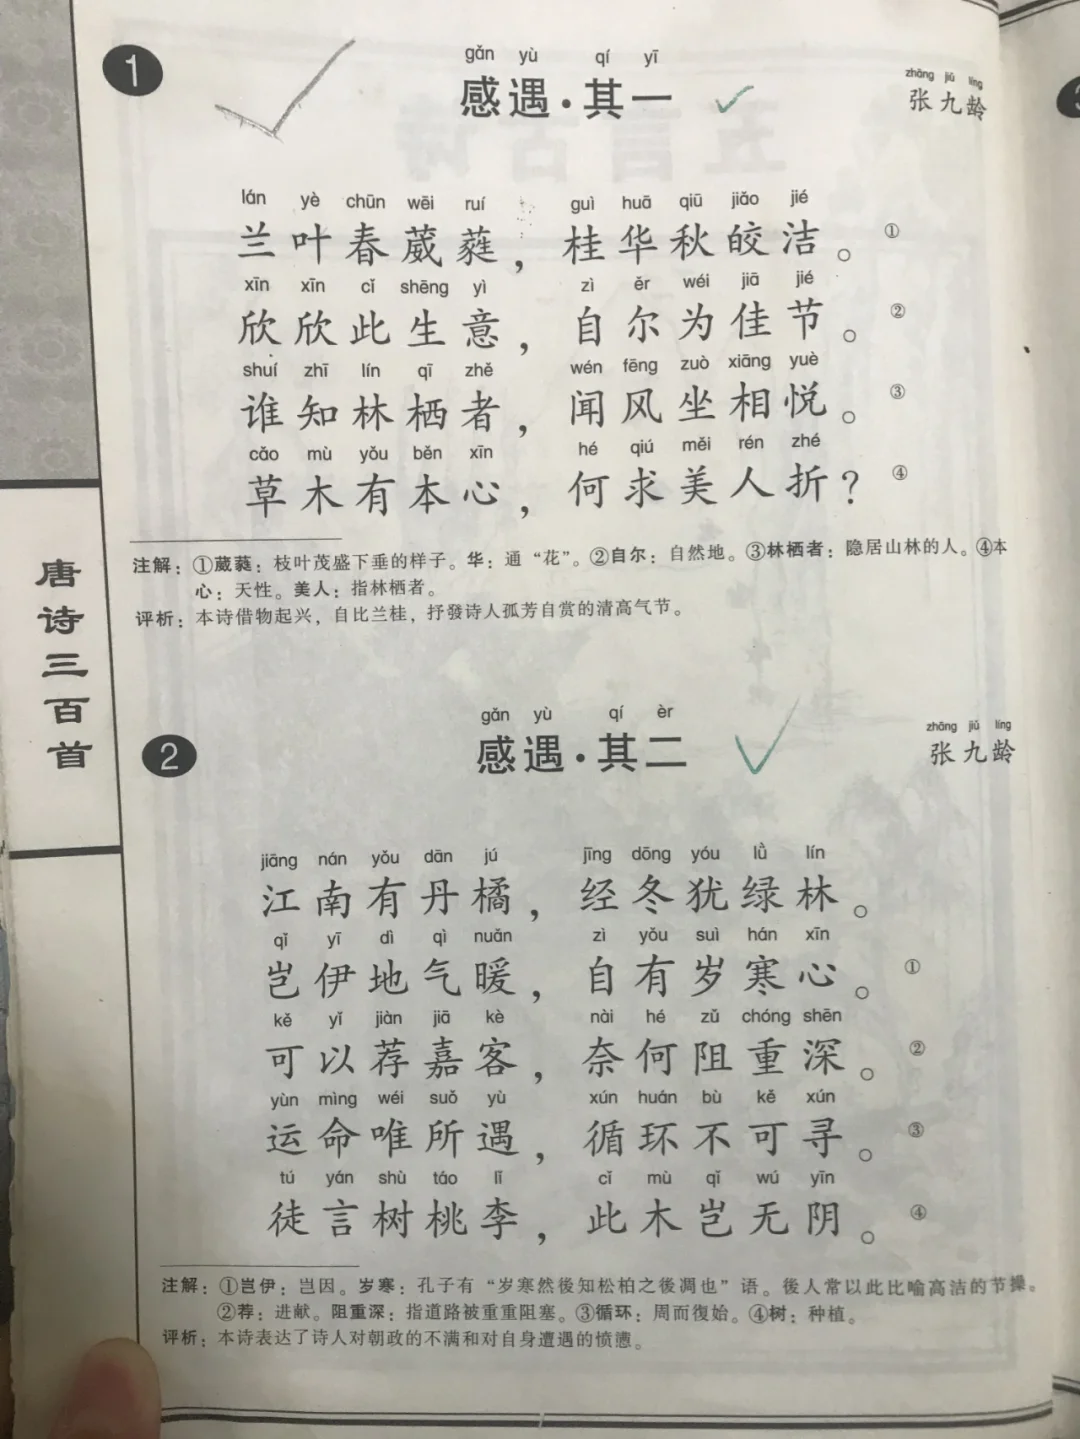 1
gǎn yù qí yī
感遇·其一
zhāng jiǔ líng
张九龄
lán yè chūn wēi ruí guì huā qiū jiǎo jié
兰叶春葳蕤，桂华秋皎洁。①
xīn xīn cǐ shēng yì zì ěr wéi jiā jié
欣欣此生意，自尔为佳节。②
shuí zhī lín qī zhě wén fēng zuò xiāng yuè
谁知林栖者，闻风坐相悦。③
cǎo mù yǒu běn xīn hé qiú měi rén zhé
草木有本心，何求美人折？④
注解：①葳蕤：枝叶茂盛下垂的样子。华：通“花”。②自尔：自然地。③林栖者：隐居山林的人。④本
心：天性。美人：指林栖者。
评析：本诗借物起兴，自比兰桂，抒發诗人孤芳自赏的清高气节。
唐诗三百首
2
gǎn yù qí èr
感遇·其二
zhāng jiǔ líng
张九龄
jiāng nán yǒu dān jú jīng dōng yóu lǜ lín
江南有丹橘，经冬犹绿林。
qǐ yī dì qì nuǎn zì yǒu suì hán xīn
岂伊地气暖，自有岁寒心。①
kě yǐ jiàn jiā kè nài hé zǔ chóng shēn
可以荐嘉客，奈何阻重深。②
yùn mìng wéi suǒ yù xún huán bù kě xún
运命唯所遇，循环不可寻。③
tú yán shù táo lǐ cǐ mù qǐ wú yīn
徒言树桃李，此木岂无阴。④
注解：①岂伊：岂因。岁寒：孔子有“岁寒然後知松柏之後凋也”语。後人常以此比喻高洁的节操。
②荐：进献。阻重深：指道路被重重阻塞。③循环：周而復始。④树：种植。
评析：本诗表达了诗人对朝政的不满和对自身遭遇的愤懑。